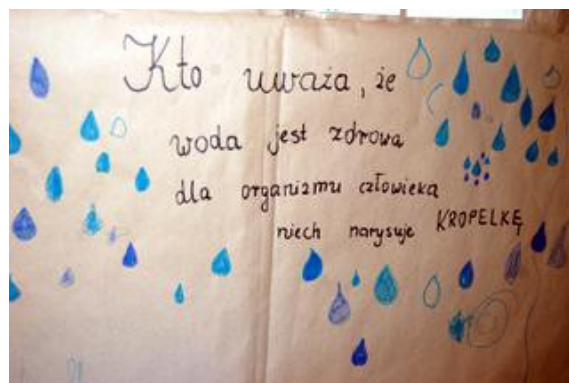 Kto uważa, że
woda jest zdrowa
dla organizmu człowieka
niech narysuje KROPELKĘ